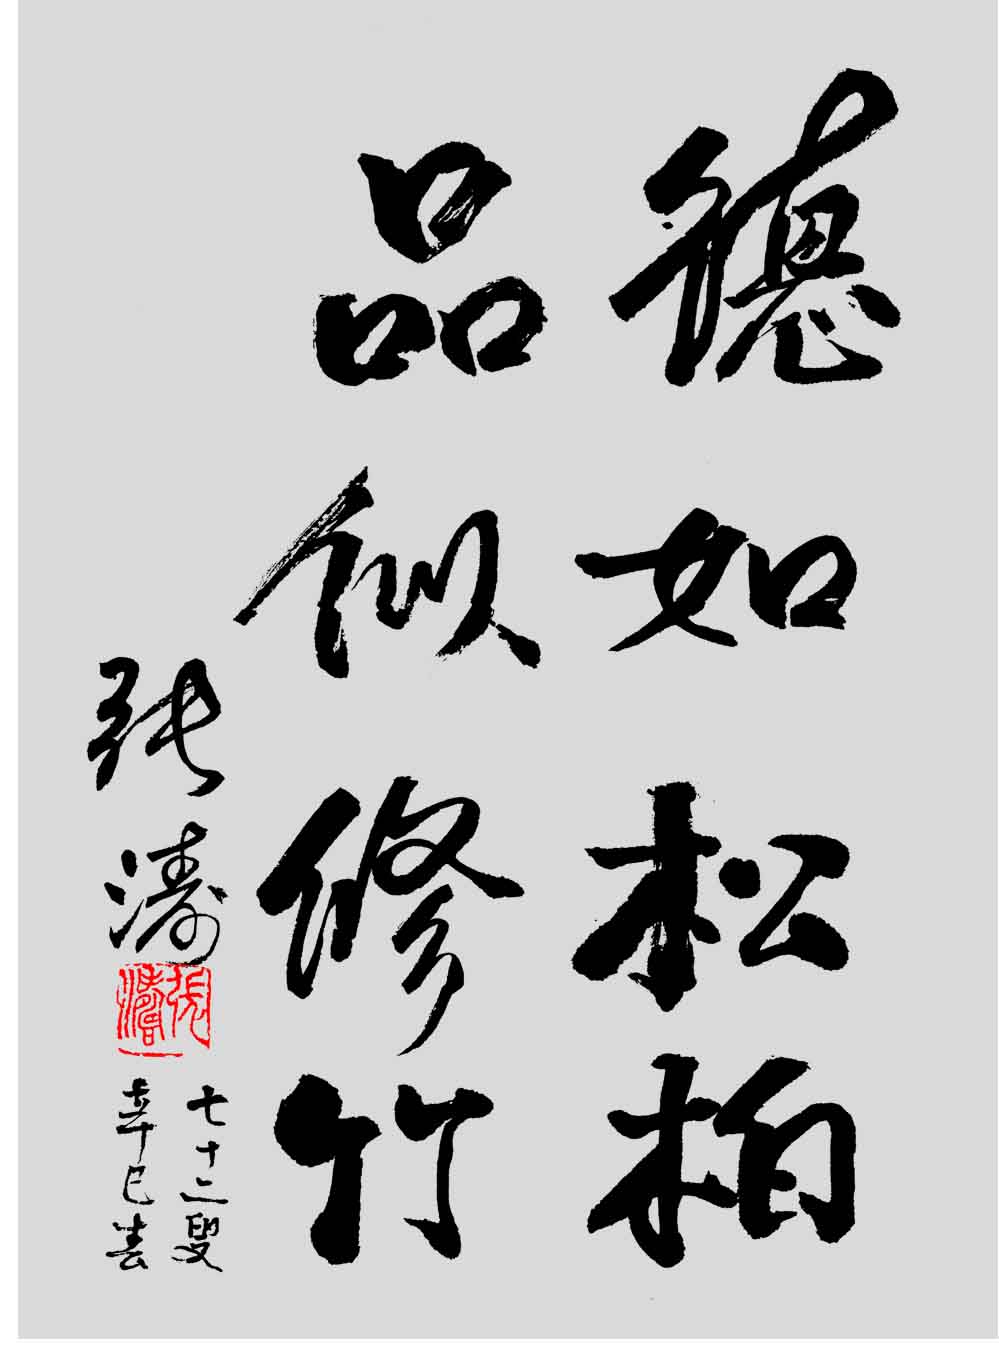 德如松柏
品似修竹
张涛
張濤
七十二叟
辛巳春